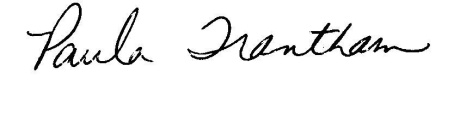 Paula Trantham